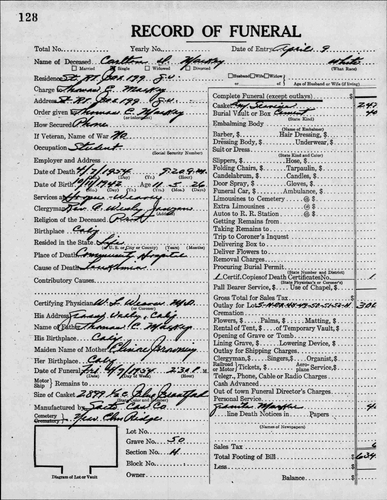 128
RECORD OF FUNERAL
Total No. Yearly No. Date of Entry April 9
Name of Deceased Carlton W. Mackey White
Married Single Widowed Divorced (What Race)
Residence St. Rt. Box 199 G.V. Husband Wife Widow of
Charge Thomas C. Mackey Age of Husband or Wife (if living)
Address St. Rt. Box 199 G.V.
Order given Thomas C. Mackey
How Secured Phone
If Veteran, Name of War No
(Social Security Number)
Occupation Student
Employer and Address
Date of Death 4/7/1954 9:20 P.M.
Date of Birth Age 11 5 26
Services at Hooper-Weaver
Clergyman Rev.
Religion of the Deceased Prot
Birthplace Calif
Resided in the State Life
(In U.S., City or County) (Years)
Place of Death Community Hospital
Cause of Death Leukemia
Contributory Causes
Certifying Physician W. L. Weaver M.D.
His Address Grass Valley, Calif
Name of Father Thomas C. Mackey
His Birthplace Calif
Maiden Name of Mother
Her Birthplace Calif
Date of Funeral Fri. 4/9/1954 2:30 P.M.
(Day) (Date) (Year) (Hour)
Motor Ship Remains to
Size of Casket
Manufactured by Sacto Cas Co
Cemetery Crematory New Elm Ridge
Lot No.
Grave No. 50
Section No. H
Block No.
Owner
Diagram of Lot or Vault
Complete Funeral (except outlays) $
Casket Service 247
Burial Vault or Box Cement 40
(State Kind)
Embalming Body
(Name of Embalmer)
Barber, $ Hair Dressing, $
Dressing Body, $ Underwear, $
Suit or Dress
(State Kind and Color)
Slippers, $ Hose, $
Folding Chairs, $ Tarpaulin, $
Candelabrum, $ Candles, $
Door Spray, $ Gloves, $
Funeral Car, $ Ambulance, $
Limousines to Cemetery @ $
Extra Limousines @ $
Autos to R. R. Station @ $
Getting Remains from
Taking Remains to
Trip to Coroner's Inquest
Delivering Box to
Deliver Flowers to
Removal Charges
Procuring Burial Permit
(State Number and District)
Certif. Copies of Death Certificate No. 1
(If Shipped State County)
Pall Bearer Service, $ Use of Chapel, $
Gross Total for Sales Tax $
Outlay for Lot 302
Cremation
Flowers, $ Palms, $ Matting, $
Rental of Tent, $ of Temporary Vault, $
Opening of Grave or Tomb
Lining Grave, $ Lowering Device, $
Outlay for Shipping Charges
Clergyman, $ Singers, $ Organist, $
Railroad Motor Tickets, $ Plane Service, $
Telegr., Phone, Cable or Radio Charges
Cash Advanced
Out of town Funeral Director's Charges
Personal Service
Marker
line Death Notices in Papers
(Names of Newspapers)
Sales Tax 6
Total Footing of Bill $ 634
Less
Balance $